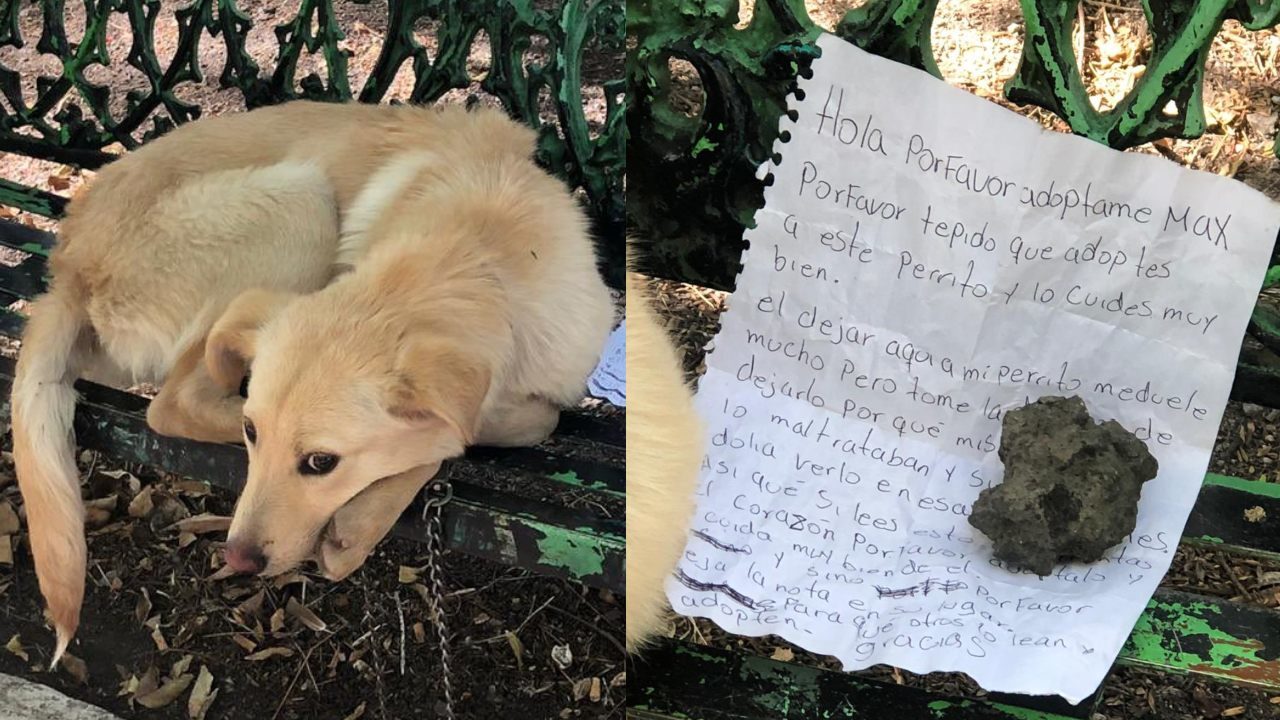 Hola PorFavor adoptame MAX
PorFavor tepido que adoptes
a este Perrito y lo Cuides muy
bien.
el dejar aqui a mi perrito meduele
mucho Pero tome la de
dejarlo Por qué mis
lo maltrataban y
dolia verlo en
Asi qué Si lees esto
el Corazón Porfavor adoptalo y
cuida muy bien de el.
y sino PorFavor
eja la nota en su lugar
Para qué otros lo lean y
adopten.
gracias